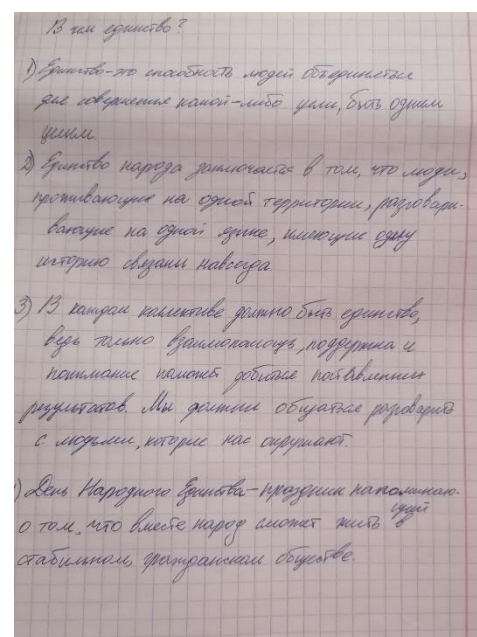 В чем единство?
1) Единство-это способность людей объединяться
для совершения какой-либо цели, быть одним
целым.
2) Единство народа заключается в том, что люди,
проживающие на одной территории, разговари-
вающие на одной языке, имеющие одну
историю связаны навсегда
3) В каждом коллективе должно быть единство,
ведь только взаимопомощь, поддержка и
понимание поможет добиться поставленных
результатов. Мы должны общаться разговаривать
с людьми, которые нас окружают.
) День Народного Единства-праздник напоминаю-
щий
о том, что вместе народ сможет жить в
стабильном, гражданском обществе.